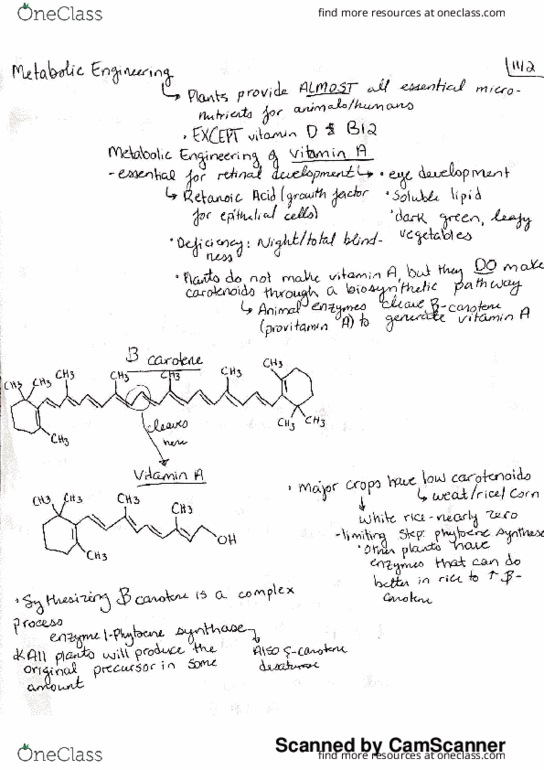 OneClass
find more resources at oneclass.com
11/2
Metabolic Engineering
↳ Plants provide ALMOST all essential micro-
nutrients for animals/humans
• EXCEPT vitamin D & B12
Metabolic Engineering of vitamin A
- essential for retinal development ↳ • eye development
↳ Retanoic Acid (growth factor
for epithelial cells)
• Soluble lipid
• dark green, leafy
vegetables
• Deficiency: Night/total blind-
ness
• Plants do not make vitamin A, but they DO make
carotenoids through a biosynthetic pathway
↳ Animal enzymes cleave B-carotene
(provitamin A) to generate vitamin A
B carotene
CH3 CH3 CH3 CH3 CH3 CH3 CH3
CH3 CH3 CH3
cleaves
here
Vitamin A
CH3 CH3 CH3 CH3
OH
CH3
• Major crops have low carotenoids
↳ weat/rice/corn
White rice - nearly zero
- limiting step: phytoene synthase
• Other plants have
enzymes that can do
better in rice to ↑ B-
carotene
• Sythesizing B carotene is a complex
process
enzyme 1 - Phytoene synthase
↳ Also ς-carotene
desaturase
* All plants will produce the
original precursor in some
amount
Scanned by CamScanner
OneClass
find more resources at oneclass.com